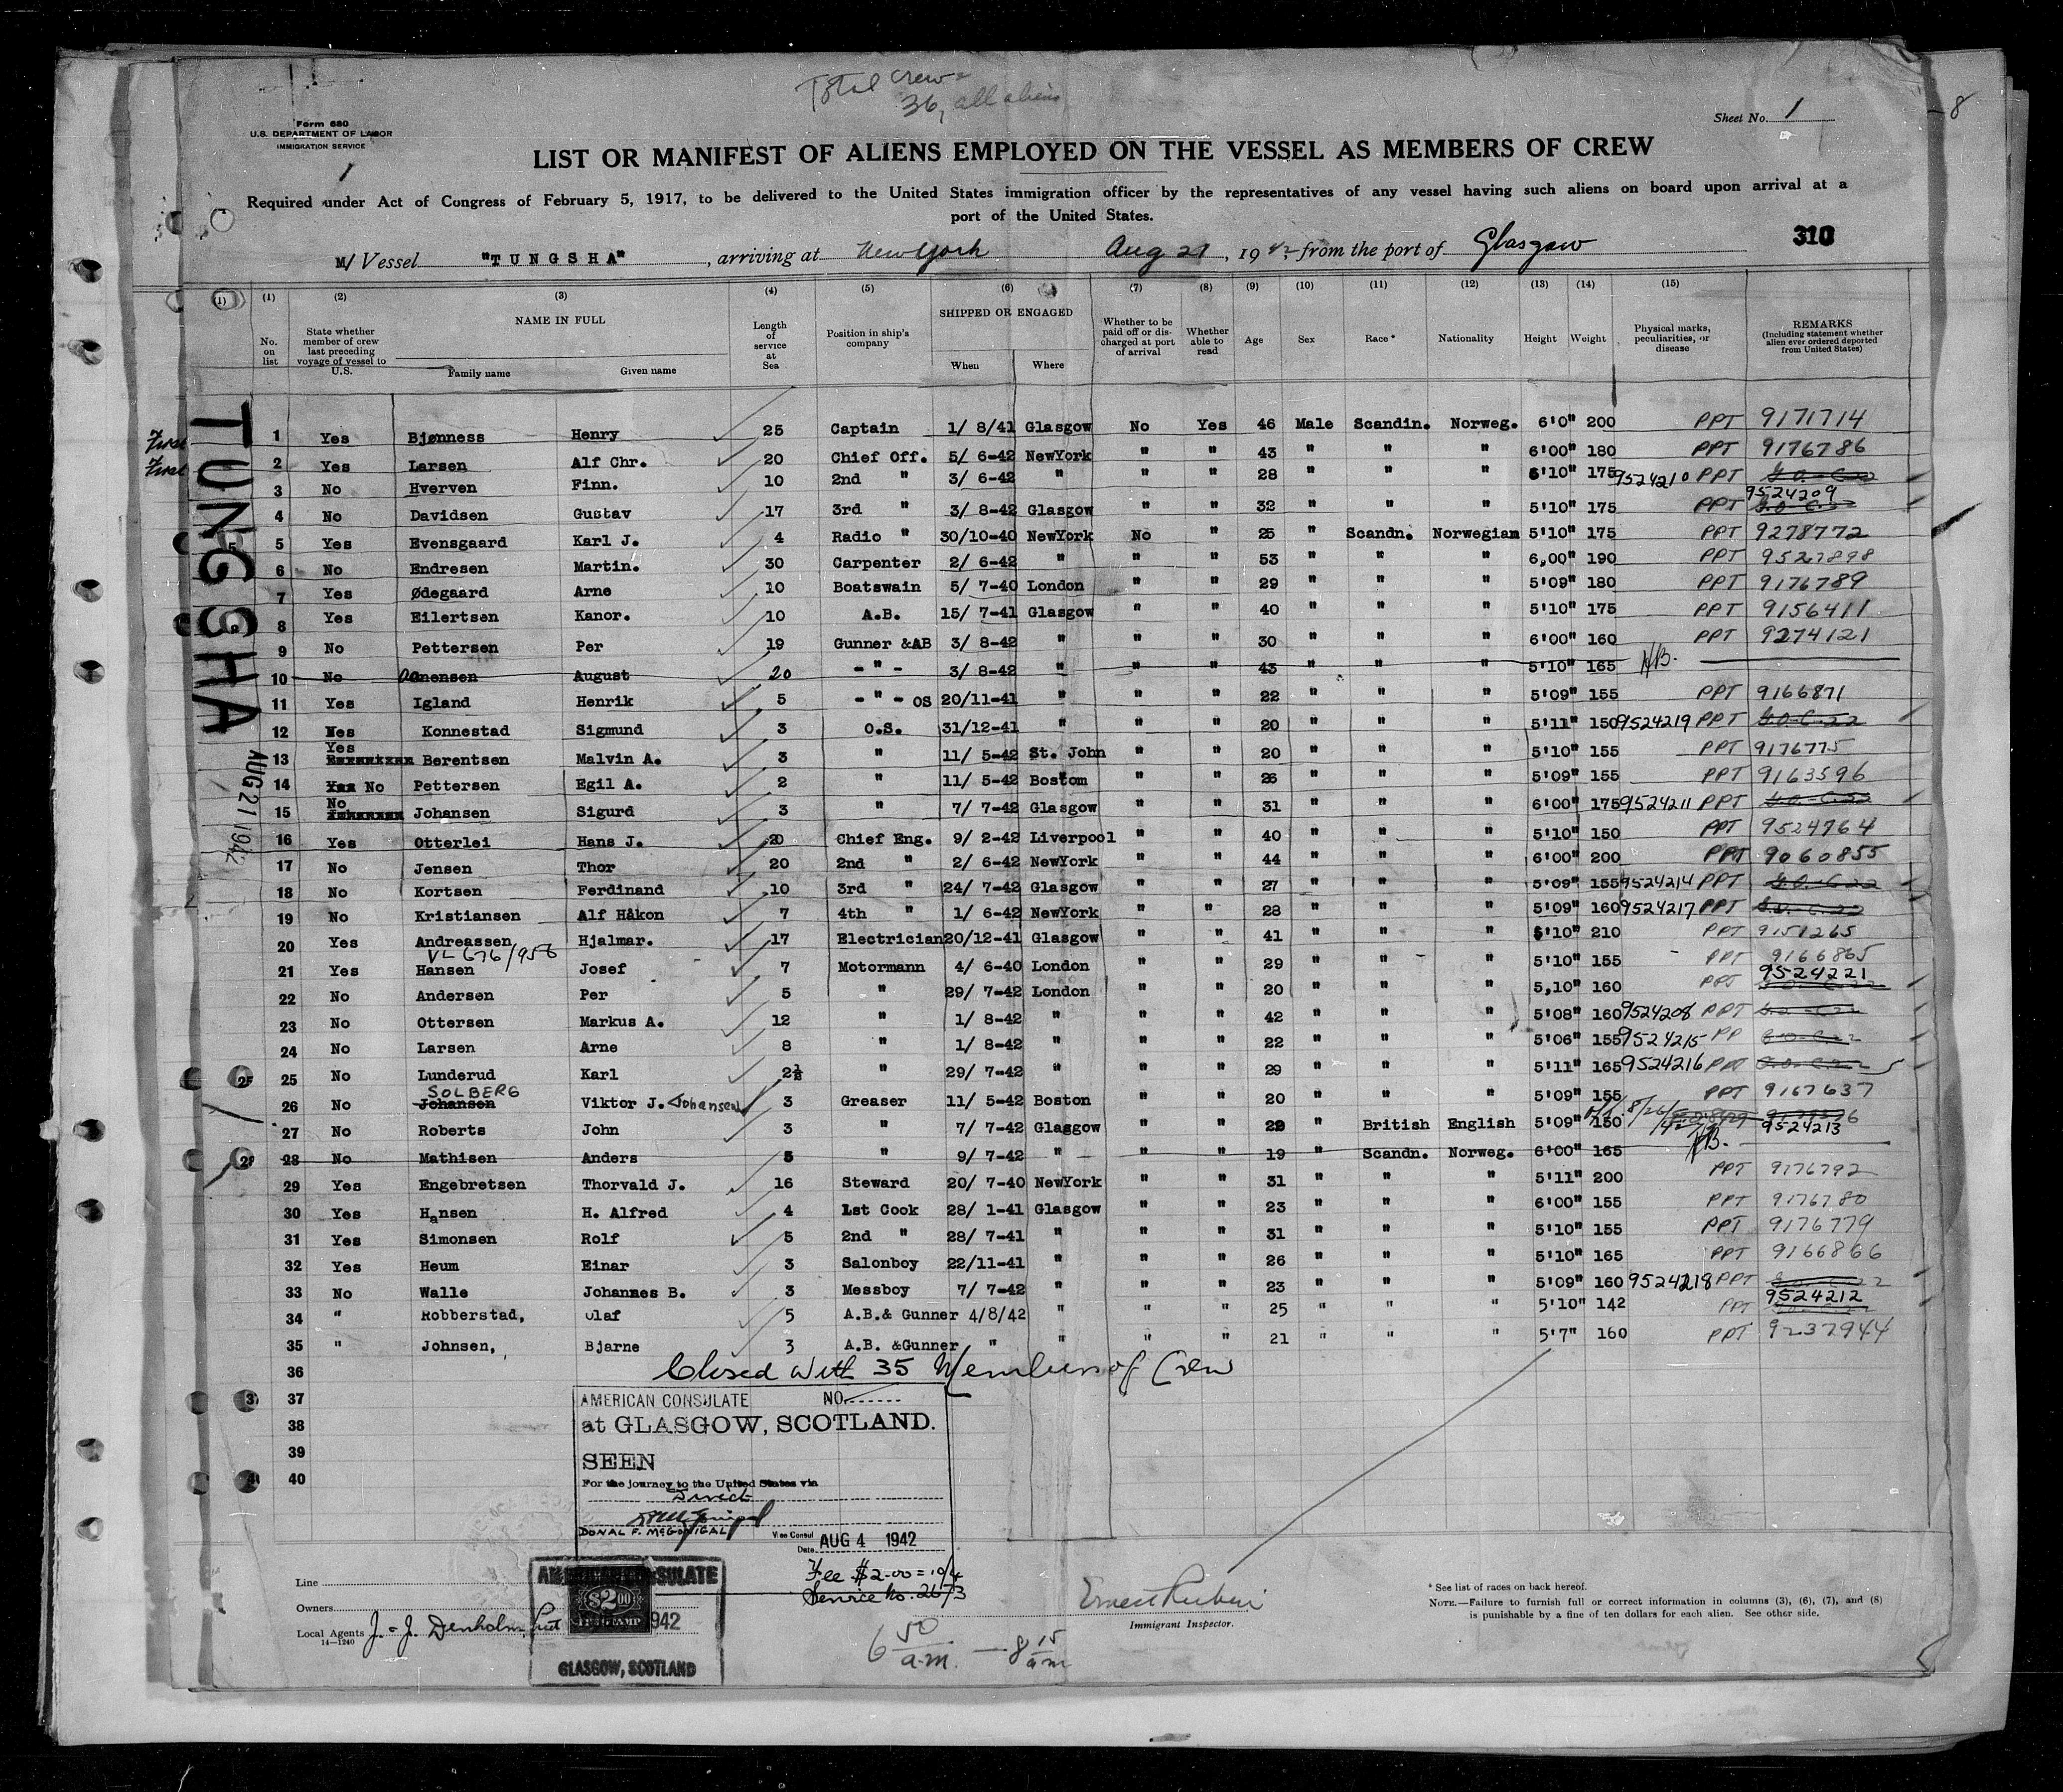 Total crew=
36, all aliens
Form 680
U.S. DEPARTMENT OF LABOR
IMMIGRATION SERVICE
1
Sheet No. 1
8
LIST OR MANIFEST OF ALIENS EMPLOYED ON THE VESSEL AS MEMBERS OF CREW
Required under Act of Congress of February 5, 1917, to be delivered to the United States immigration officer by the representatives of any vessel having such aliens on board upon arrival at a
port of the United States.
M/ Vessel "TUNGSHA", arriving at New York Aug 21, 1942 from the port of Glasgow
310
(1) (1) (2) (3) (4) (5) (6) (7) (8) (9) (10) (11) (12) (13) (14) (15)
No. on list State whether member of crew last preceding voyage of vessel to U.S. NAME IN FULL Family name Given name Length of service at Sea Position in ship's company SHIPPED OR ENGAGED When Where Whether to be paid off or discharged at port of arrival Whether able to read Age Sex Race* Nationality Height Weight Physical marks, peculiarities, or disease REMARKS (Including statement whether alien ever ordered deported from United States)
TUNGSHA
AUG 21 1942
1 Yes Bjønness Henry 25 Captain 1/ 8/41 Glasgow No Yes 46 Male Scandin. Norweg. 6'0" 200 PPT 9171714
2 Yes Larsen Alf Chr. 20 Chief Off. 5/ 6-42 NewYork " " 43 " " " 6'00" 180 PPT 9176786
3 No Hverven Finn. 10 2nd " 3/ 6-42 " " " 28 " " " 5'10" 175 9524210 PPT
4 No Davidsen Gustav 17 3rd " 3/ 8-42 Glasgow " " 32 " " " 5'10" 175 PPT 9524209
5 Yes Evensgaard Karl J. 4 Radio " 30/10-40 NewYork No " 25 " Scandn. Norwegian 5'10" 175 PPT 9278772
6 No Endresen Martin. 30 Carpenter 2/ 6-42 " " " 53 " " " 6,00" 190 PPT 9527898
7 Yes Ødegaard Arne 10 Boatswain 5/ 7-40 London " " 29 " " " 5'09" 180 PPT 9176789
8 Yes Eilertsen Kanor. 10 A.B. 15/ 7-41 Glasgow " " 40 " " " 5'10" 175 PPT 9156411
9 No Pettersen Per 19 Gunner &AB 3/ 8-42 " " " 30 " " " 6'00" 160 PPT 9274121
10 No Aanensen August 20 - " - 3/ 8-42 " " " 43 " " " 5'10" 165 NB.
11 Yes Igland Henrik 5 - " - OS 20/11-41 " " " 22 " " " 5'09" 155 PPT 9166871
12 Yes Konnestad Sigmund 3 O.S. 31/12-41 " " " 20 " " " 5'11" 150 9524219 PPT
13 Yes Berentsen Malvin A. 3 " 11/ 5-42 St. John " " 20 " " " 5'10" 155 PPT 9176775
14 Yes No Pettersen Egil A. 2 " 11/ 5-42 Bostom " " 26 " " " 5'09" 155 PPT 9163596
15 No Johansen Sigurd 3 " 7/ 7-42 Glasgow " " 31 " " " 6'00" 175 9524211 PPT
16 Yes Otterlei Hans J. 20 Chief Eng. 9/ 2-42 Liverpool " " 40 " " " 5'10" 150 PPT 9524764
17 No Jensen Thor 20 2nd " 2/ 6-42 NewYork " " 44 " " " 6'00" 200 PPT 9060855
18 No Kortsen Ferdinand 10 3rd " 24/ 7-42 Glasgow " " 27 " " " 5'09" 155 9524214 PPT
19 No Kristiansen Alf Håkon 7 4th " 1/ 6-42 NewYork " " 28 " " " 5'09" 160 9524217 PPT
20 Yes Andreassen Hjalmar. 17 Electrician 20/12-41 Glasgow " " 41 " " " 5'10" 210 PPT 9151265
VL 676/958
21 Yes Hansen Josef 7 Motormann 4/ 6-40 London " " 29 " " " 5'10" 155 PPT 9166865
22 No Andersen Per 5 " 29/ 7-42 London " " 20 " " " 5,10" 160 PPT 9524221
23 No Ottersen Markus A. 12 " 1/ 8-42 " " " 42 " " " 5'08" 160 9524208 PPT
24 No Larsen Arne 8 " 1/ 8-42 " " " 22 " " " 5'06" 155 9524215 PP
25 No Lunderud Karl 2½ " 29/ 7-42 " " " 29 " " " 5'11" 165 9524216 PPT
SOLBERG
26 No Johansen Viktor J. Johansen 3 Greaser 11/ 5-42 Boston " " 20 " " " 5'09" 155 PPT 9167637
27 No Roberts John 3 " 7/ 7-42 Glasgow " " 29 " British English 5'09" 150 9524213
28 No Mathisen Anders 5 " 9/ 7-42 " " " 19 " Scandn. Norweg. 6'00" 165 NB.
29 Yes Engebretsen Thorvald J. 16 Steward 20/ 7-40 NewYork " " 31 " " " 5'11" 200 PPT 9176792
30 Yes Hansen H. Alfred 4 1st Cook 28/ 1-41 Glasgow " " 23 " " " 6'00" 155 PPT 9176780
31 Yes Simonsen Rolf 5 2nd " 28/ 7-41 " " " 31 " " " 5'10" 155 PPT 9176779
32 Yes Heum Einar 3 Salonboy 22/11-41 " " " 26 " " " 5'10" 165 PPT 9166866
33 No Walle Johannes B. 3 Messboy 7/ 7-42 " " " 23 " " " 5'09" 160 9524218 PPT
34 " Robberstad, Olaf 5 A.B.& Gunner 4/8/42 " " " 25 " " " 5'10" 142 PPT 9524212
35 " Johnsen, Bjarne 3 A.B. &Gunner " " " " 21 " " " 5'7" 160 PPT 9237944
36
Closed with 35 Members of Crew
37
38
39
40
AMERICAN CONSULATE NO.
at GLASGOW, SCOTLAND.
SEEN
For the journey to the United States via
Direct
DONAL F. McGONIGAL Vice Consul
Date AUG 4 1942
Fee $2.00 = 10/4
Service No. 2673
AMERICAN CONSULATE
$2.00
1942
GLASGOW, SCOTLAND
Line
Owners
Local Agents J. & J. Denholm
14—1240
6 50 a.m. — 8 15 a.m.
Ernest Rubin
Immigrant Inspector.
* See list of races on back hereof.
NOTE.—Failure to furnish full or correct information in columns (3), (6), (7), and (8)
is punishable by a fine of ten dollars for each alien. See other side.